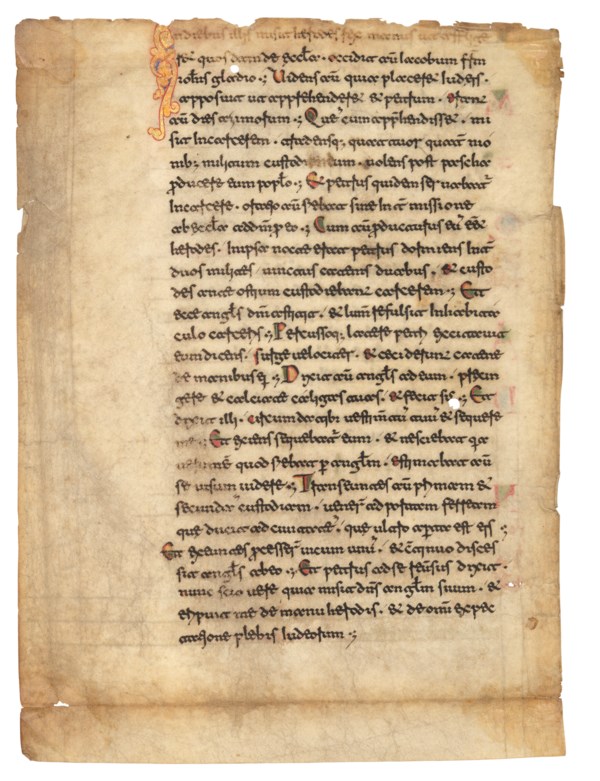 In diebus illis misit herodes rex manus ut afflige
ret quosdam de ecclā. occidit autē Iacobum frm
iohis gladio. Uidens autē quia placeret iudeis.
apposuit ut apprehenderet et petrum. erant
autē dies azimorum. Quē cum apphendisset. mi
sit in carcerem. tradensq; quattuor quatnio
nib; militum custodiendum. uolens post pascha
producere eum poplo. Et petrus quidem seruabatr
in carcere. oratio autē fiebat sine intmissione
ab ecclā ad dm p eo. Cum autē producturus eū eēt
herodes. In ipsa nocte erat petrus dormiens int
duos milites uinctus catenis duabus. et custo
des ante ostium custodiebant carcerem. Et
ecce angls dni astitit. et lum refulsit in habita
culo carceris. Percussoq; latere petri excitauit
eum dicens. surge uelociter. et ceciderunt catene
de manibus ei. Dixit autē angls ad eum. pcin
gere et calcia te caligas tuas. et fecit sic. Et
dixit illi. circumda tibi uestimtū tuū et sequere
me. Et exiens sequebatr eum. et nesciebat qa
uerum ē quod fiebat p anglm. estimabat autē
se uisum uidere. Transeuntes autē pmam et
secundā custodiam. uenert ad portam ferream
que ducit ad ciuitatē. que ultro apta est eis
Et exeuntes pcessert uicum unū. et contnuo disces
sit angls ab eo. Et petrus ad se reusus dixit.
nunc scio uere quia misit dns anglm suum. et
eripuit me de manu herodis. et de omi expec
tatione plebis iudeorum